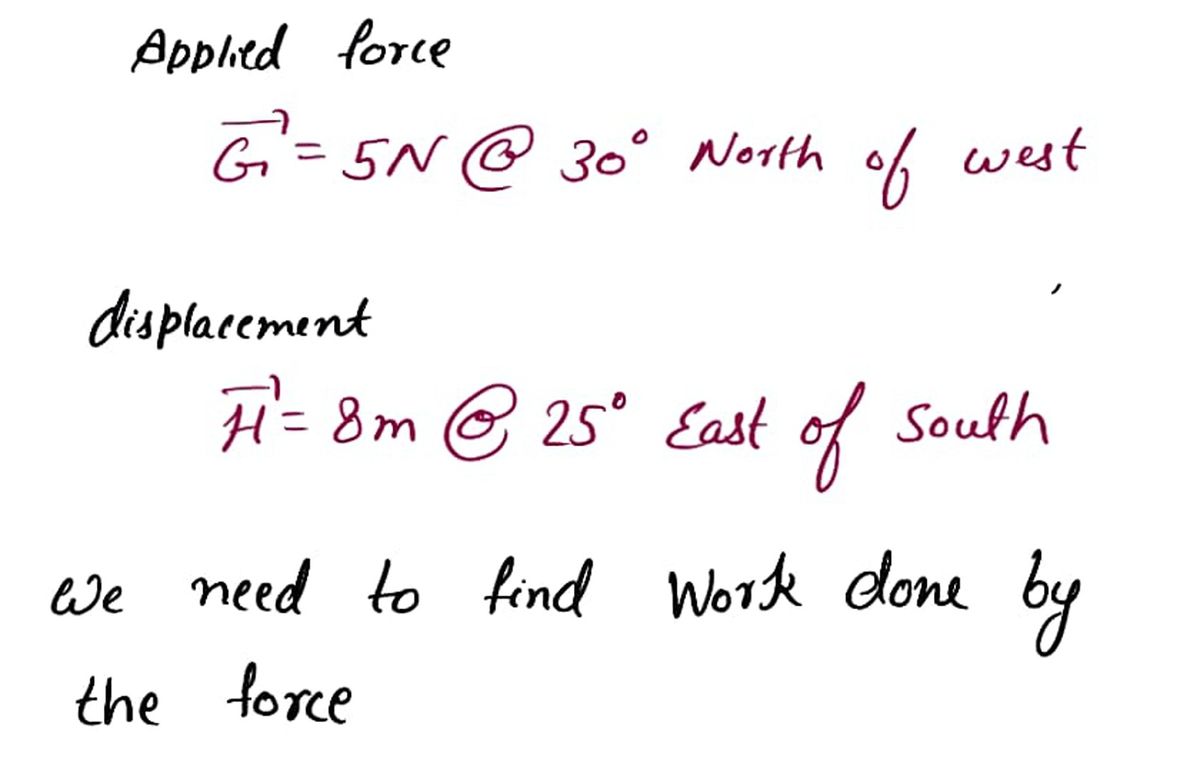 Applied force
G⃗ = 5N @ 30° North of west
displacement
H⃗ = 8m @ 25° East of South
We need to find Work done by
the force